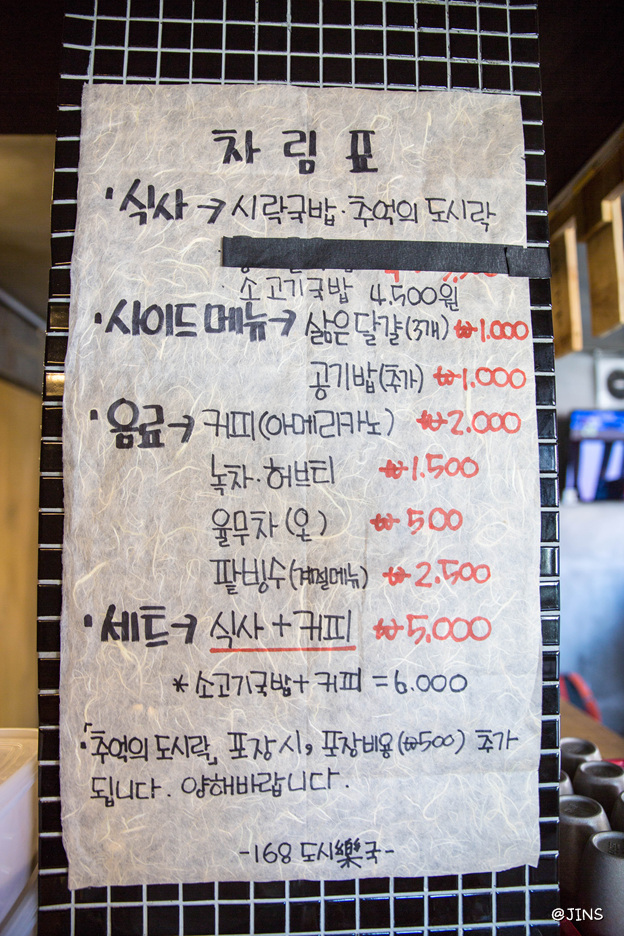 차림표
· 식사 → 시락국밥 · 추억의 도시락
· 소고기국밥 4.500원
· 사이드메뉴 → 삶은달걀(3개) ₩1.000
공기밥(추가) ₩1.000
· 음료 → 커피(아메리카노) ₩2.000
녹차·허브티 ₩1.500
율무차(온) ₩500
팥빙수(계절메뉴) ₩2.500
· 세트 → 식사+커피 ₩5,000
*소고기국밥+커피 =6.000
·「추억의 도시락」 포장시, 포장비용(₩500) 추가
됩니다. 양해바랍니다.
-168 도시樂국-
@JINS